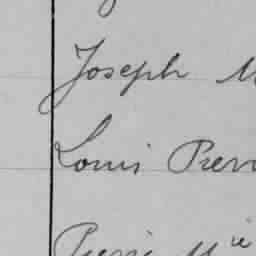 Joseph M
Louis Pierr
Pierre M ie